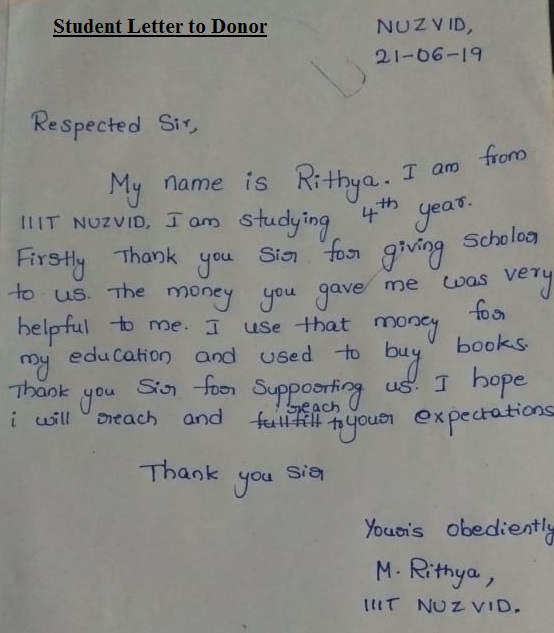 Student Letter to Donor
NUZVID,
21-06-19
Respected Sir,
My name is Rithya. I am from
IIIT NUZVID, I am studying 4th year.
Firstly Thank you Sir for giving Scholar
to us. The money you gave me was very
helpful to me. I use that money for
my education and used to buy books.
Thank you Sir for Supporting us. I hope
reach
i will reach and fullfill to your expectations
Thank you Sir
Your's obediently
M. Rithya,
IIIT NUZVID.